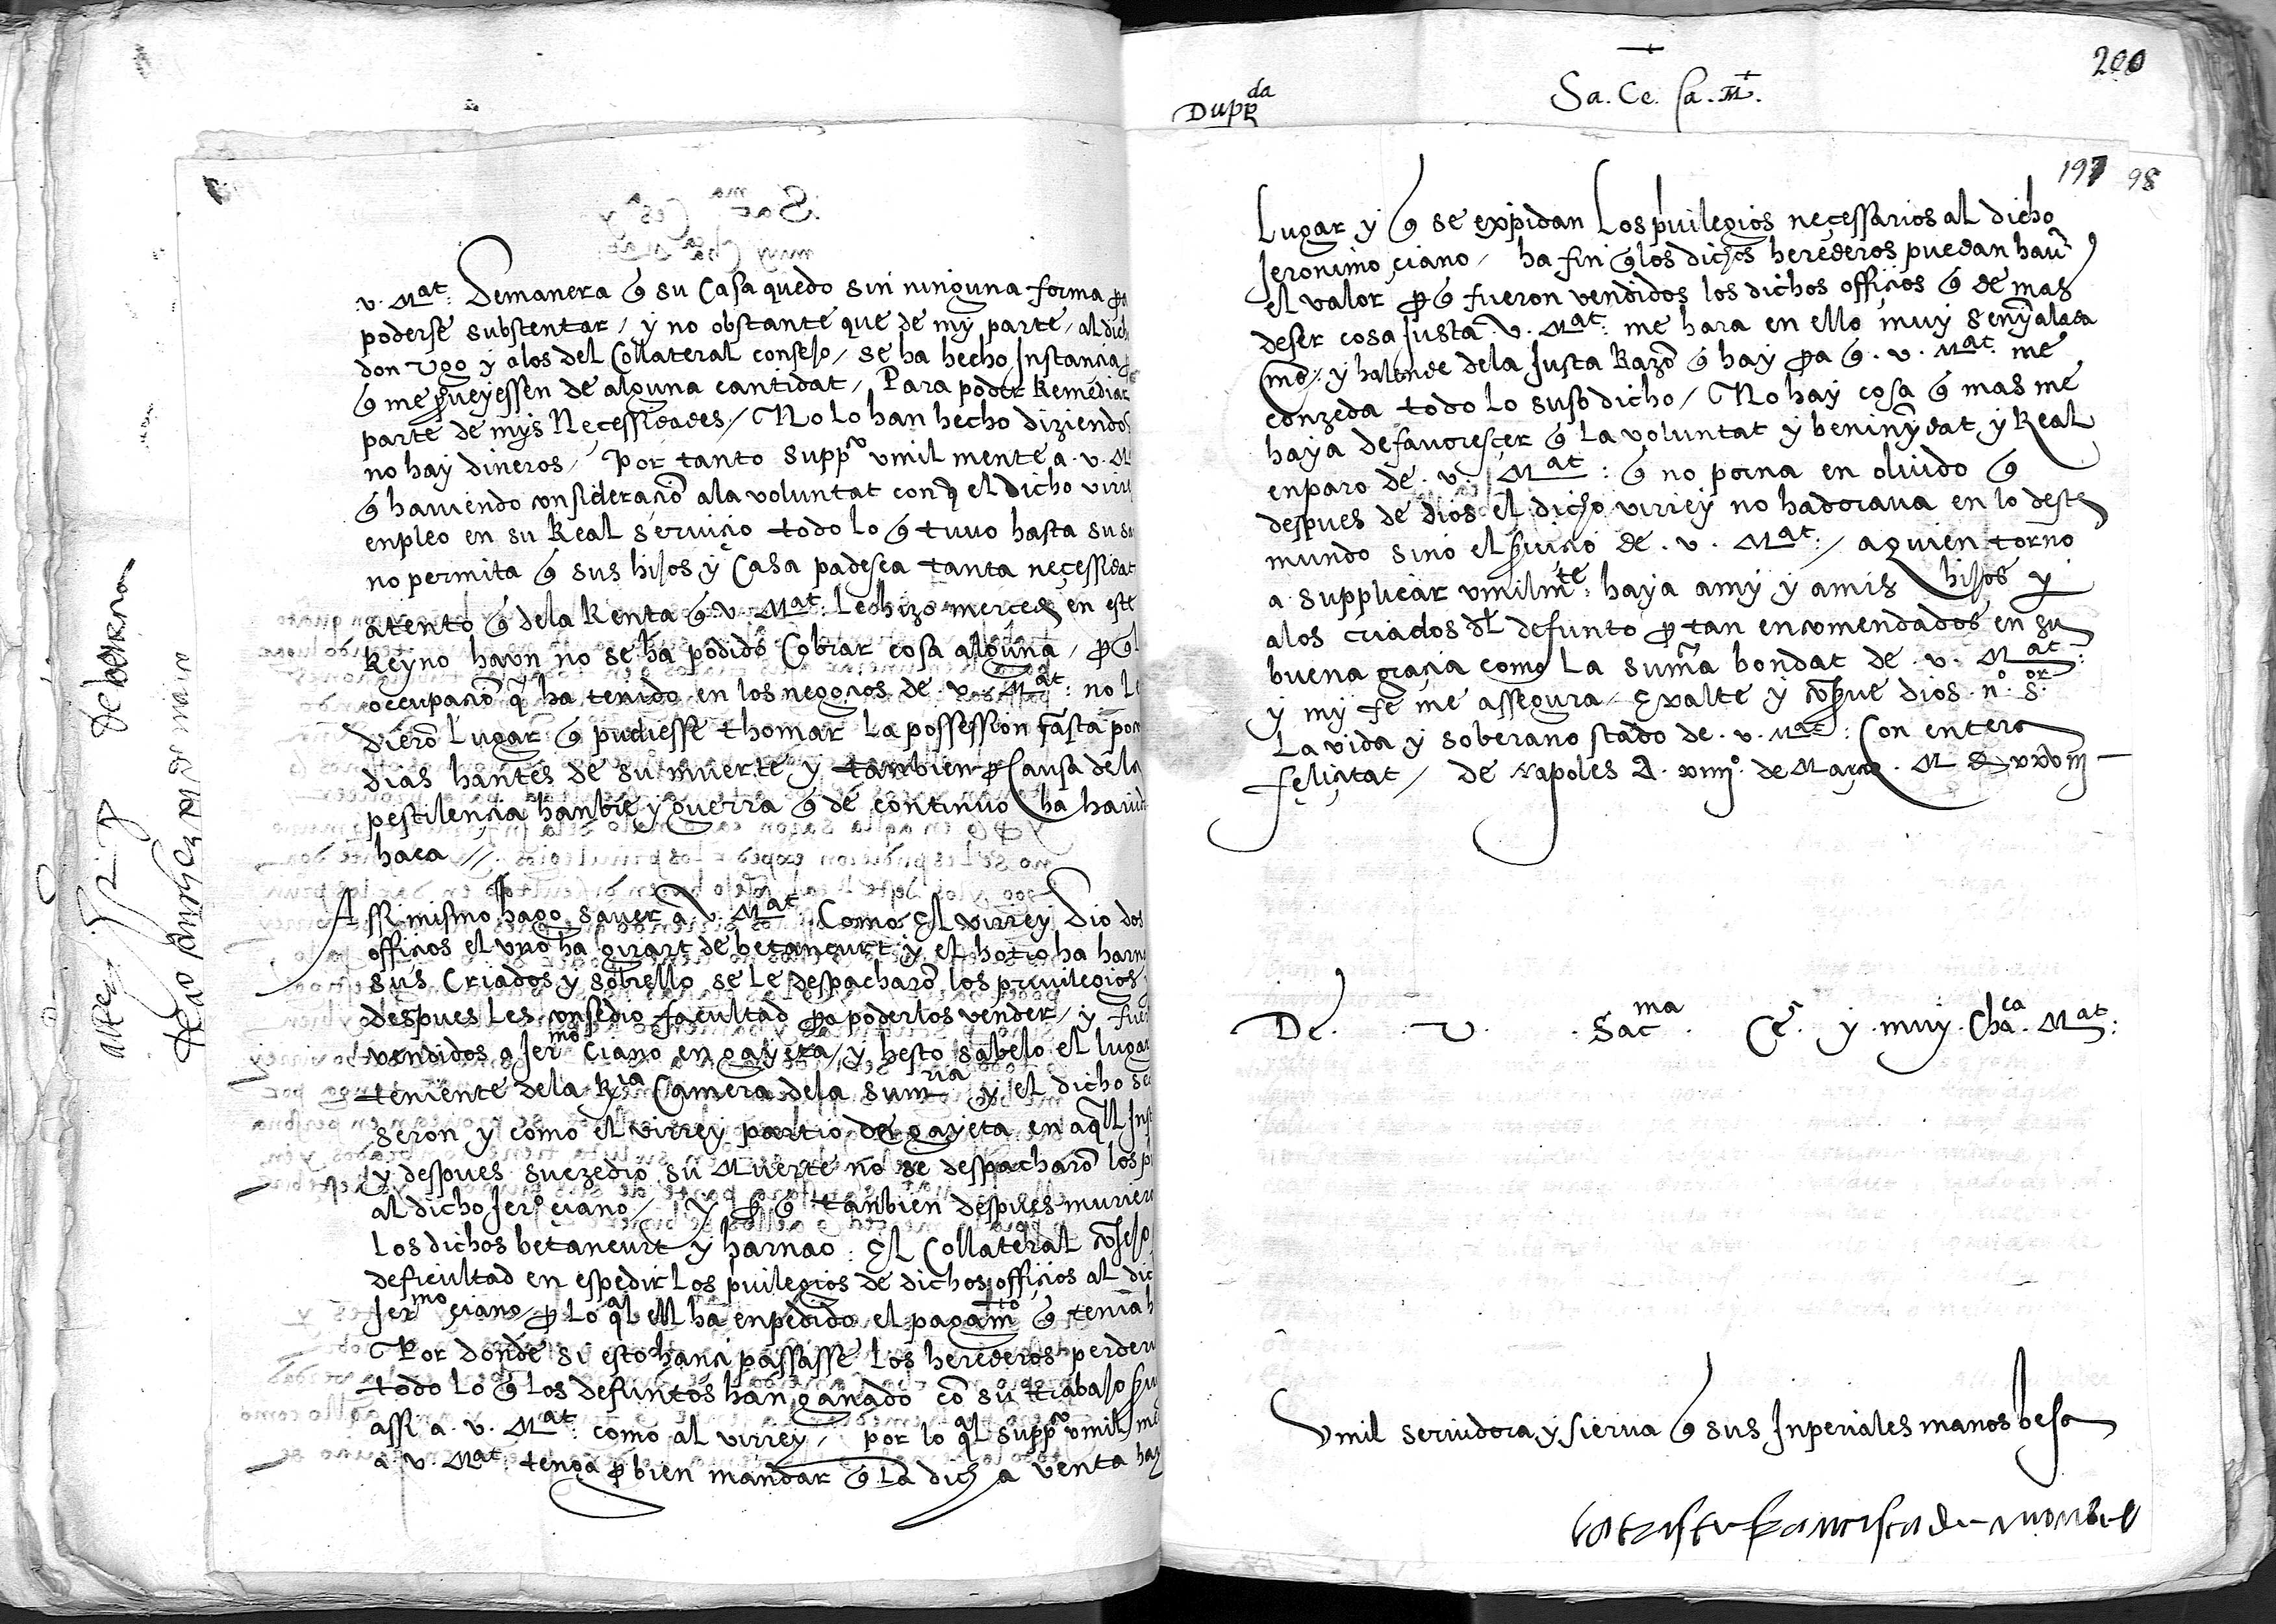 v. Mat: Demanera q̃ su Casa quedo sin ninguna forma pa
poderse substentar / y no obstante que de my parte / al dich
don Ugo y alos del Collateral consejo / se ha hecho Instancia
q̃ me proveyessen de alguna cantidat / Para poder Remediar
parte de mys Necessidades / No lo han hecho diziendo
no hay dineros / Por tanto suppco umil mente a. v. M
q̃ haviendo consideracio ala voluntat con q̃ el dicho virr
enpleo en su Real servicio todo lo q̃ tuvo hasta su
no permita q̃ sus hijos y Casa padesca tanta necessidat
atento q̃ dela Renta q̃ v. Mat: Le hizo merced en este
Reyno haun no se ha podido Cobrar cosa alguna / por q̃ l
occupacio q̃ ha tenido en los negocios de v. Mat: no le
diero Lugar q̃ pudiesse thomar La possession fasta po
dias hantes de su muerte y tambien por Causa dela
pestilencia hanbre y guerra q̃ de continuo ha havid
haca //
Assi mismo hago saver a v. Mat Como El virrey Dio dos
officios el uno ha girart de betancurt y el hotro ha harn
sus Criados y sobrello se le despacharo los previlegios
despues les consedio facultad pa poderlos vender / y fue
vendidos a Jermo ciano en gayeta / y hesto sabelo el lugar
teniente dela Ria Camera dela sumria y el dicho se
seron y como el virrey partio de gayeta en aqll Inst
y despues suczedio su Muerte no se despacharo los p
al dicho Jero ciano / Y por q̃ tanbien despues muriero
Los dichos betancurt y harnao: El Collateral cosejo
deficultad en espedir Los pvilegios de dichos officios al dic
Jermo ciano / por Lo qal ell ha enpedido el pagamto q̃ tenia h
Por donde si esto hanci passasse Los herederos perder
todo lo q̃ Los defuntos han ganado co su trabajo
assi a. v. Mat: como al virrey / por lo qal suppco umil me
a. v. Mat: tenga por bien mandar q̃ La dicha venta hay
Duppda
Sa. Ce. Ca. Mt.
200
197 98
Lugar y q̃ se expidan Los pvilegios neçessarios al dicho
Jeronimo çiano / ha fin q̃ los dichos herederos puedan haver
el valor por q̃ fueron vendidos los dichos officios q̃ de mas
deser cosa Justa v. Mat: me hara en ello muy senyalada
md / y hallende dela Justa Razo q̃ hay pa q̃. v. Mat. me
conzeda todo lo suso dicho / No hay cosa q̃ mas me
haya defavorescer q̃ La voluntat y beninydat y Real
enparo de. v. Mat: q̃ no porna en olvido q̃
despues de dios el dicho virrey no hadorava en lo deste
mundo sino el servicio de. v. Mat: / aquien torno
a supplicar umilmte: haya a my y a mis hijos y
alos criados dl defunto por tan encomendados en su
buena gracia como La suma bondat de. v. Mat:
y my fe me assegura / Exalte y coserve dios. no. sor
La vida y soberano stado de. v. Mat: Con entera
feliçitat / de Napoles A. xviijo. de Março. M D xxviij
De. v. Sacma. Ces. y. muy. Chaca. Mat:
Umil servidora y sierva q̃ sus Inperiales manos besa
la triste francisca de